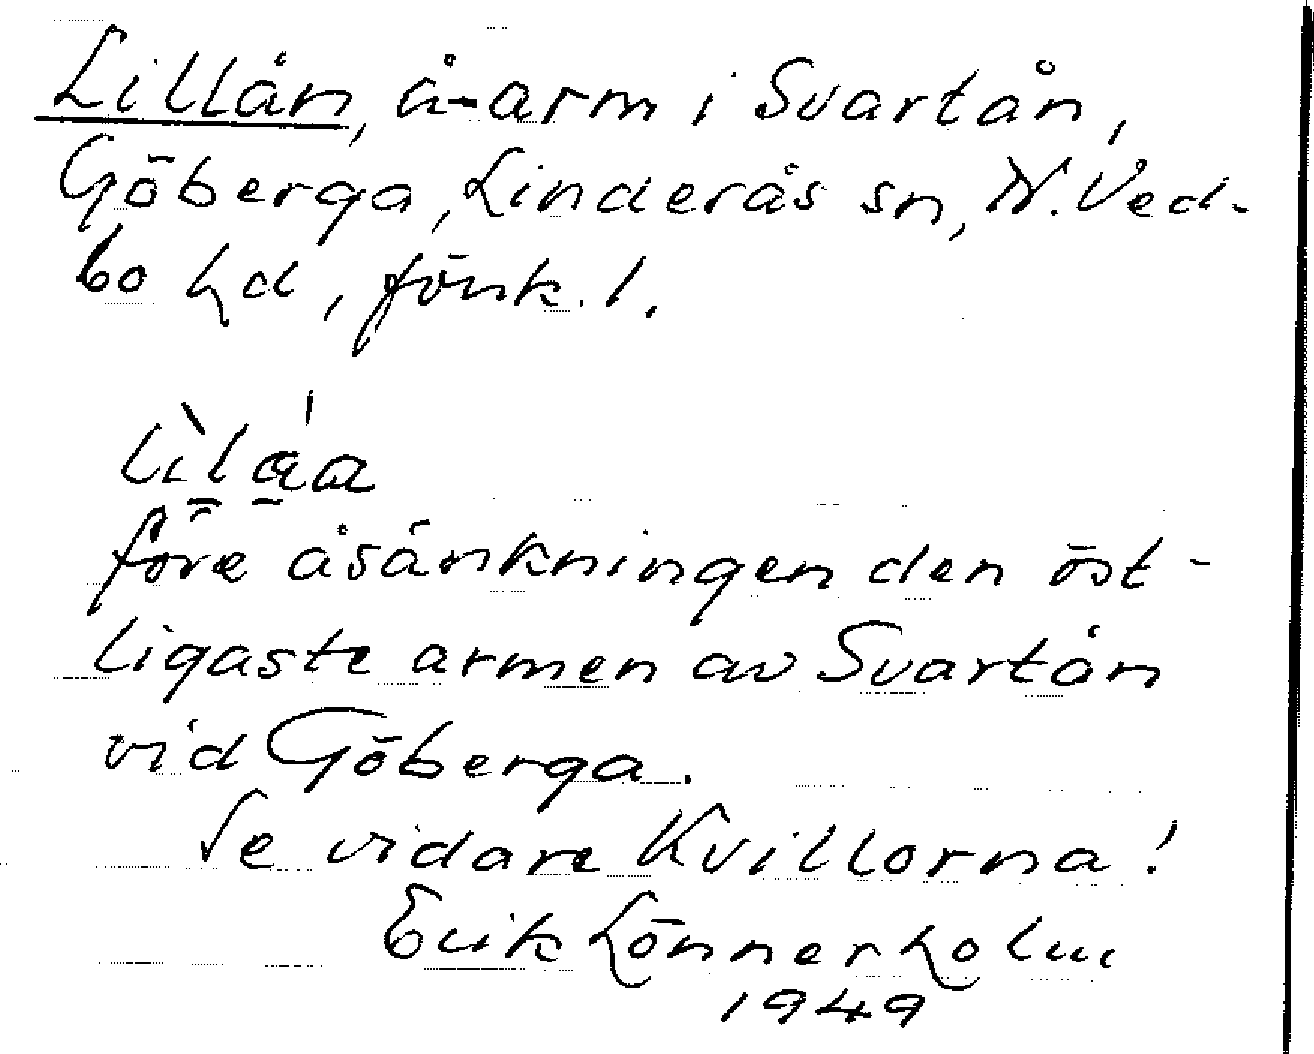 Lillån, å-arm i Svartån,
Göberga, Linderås sn, N. Ved-
bo hd, Jönk. l.
före åsänkningen den öst-
ligaste armen av Svartån
vid Göberga.
Se vidare Kvillorna!
Erik Lönnerholm
1949